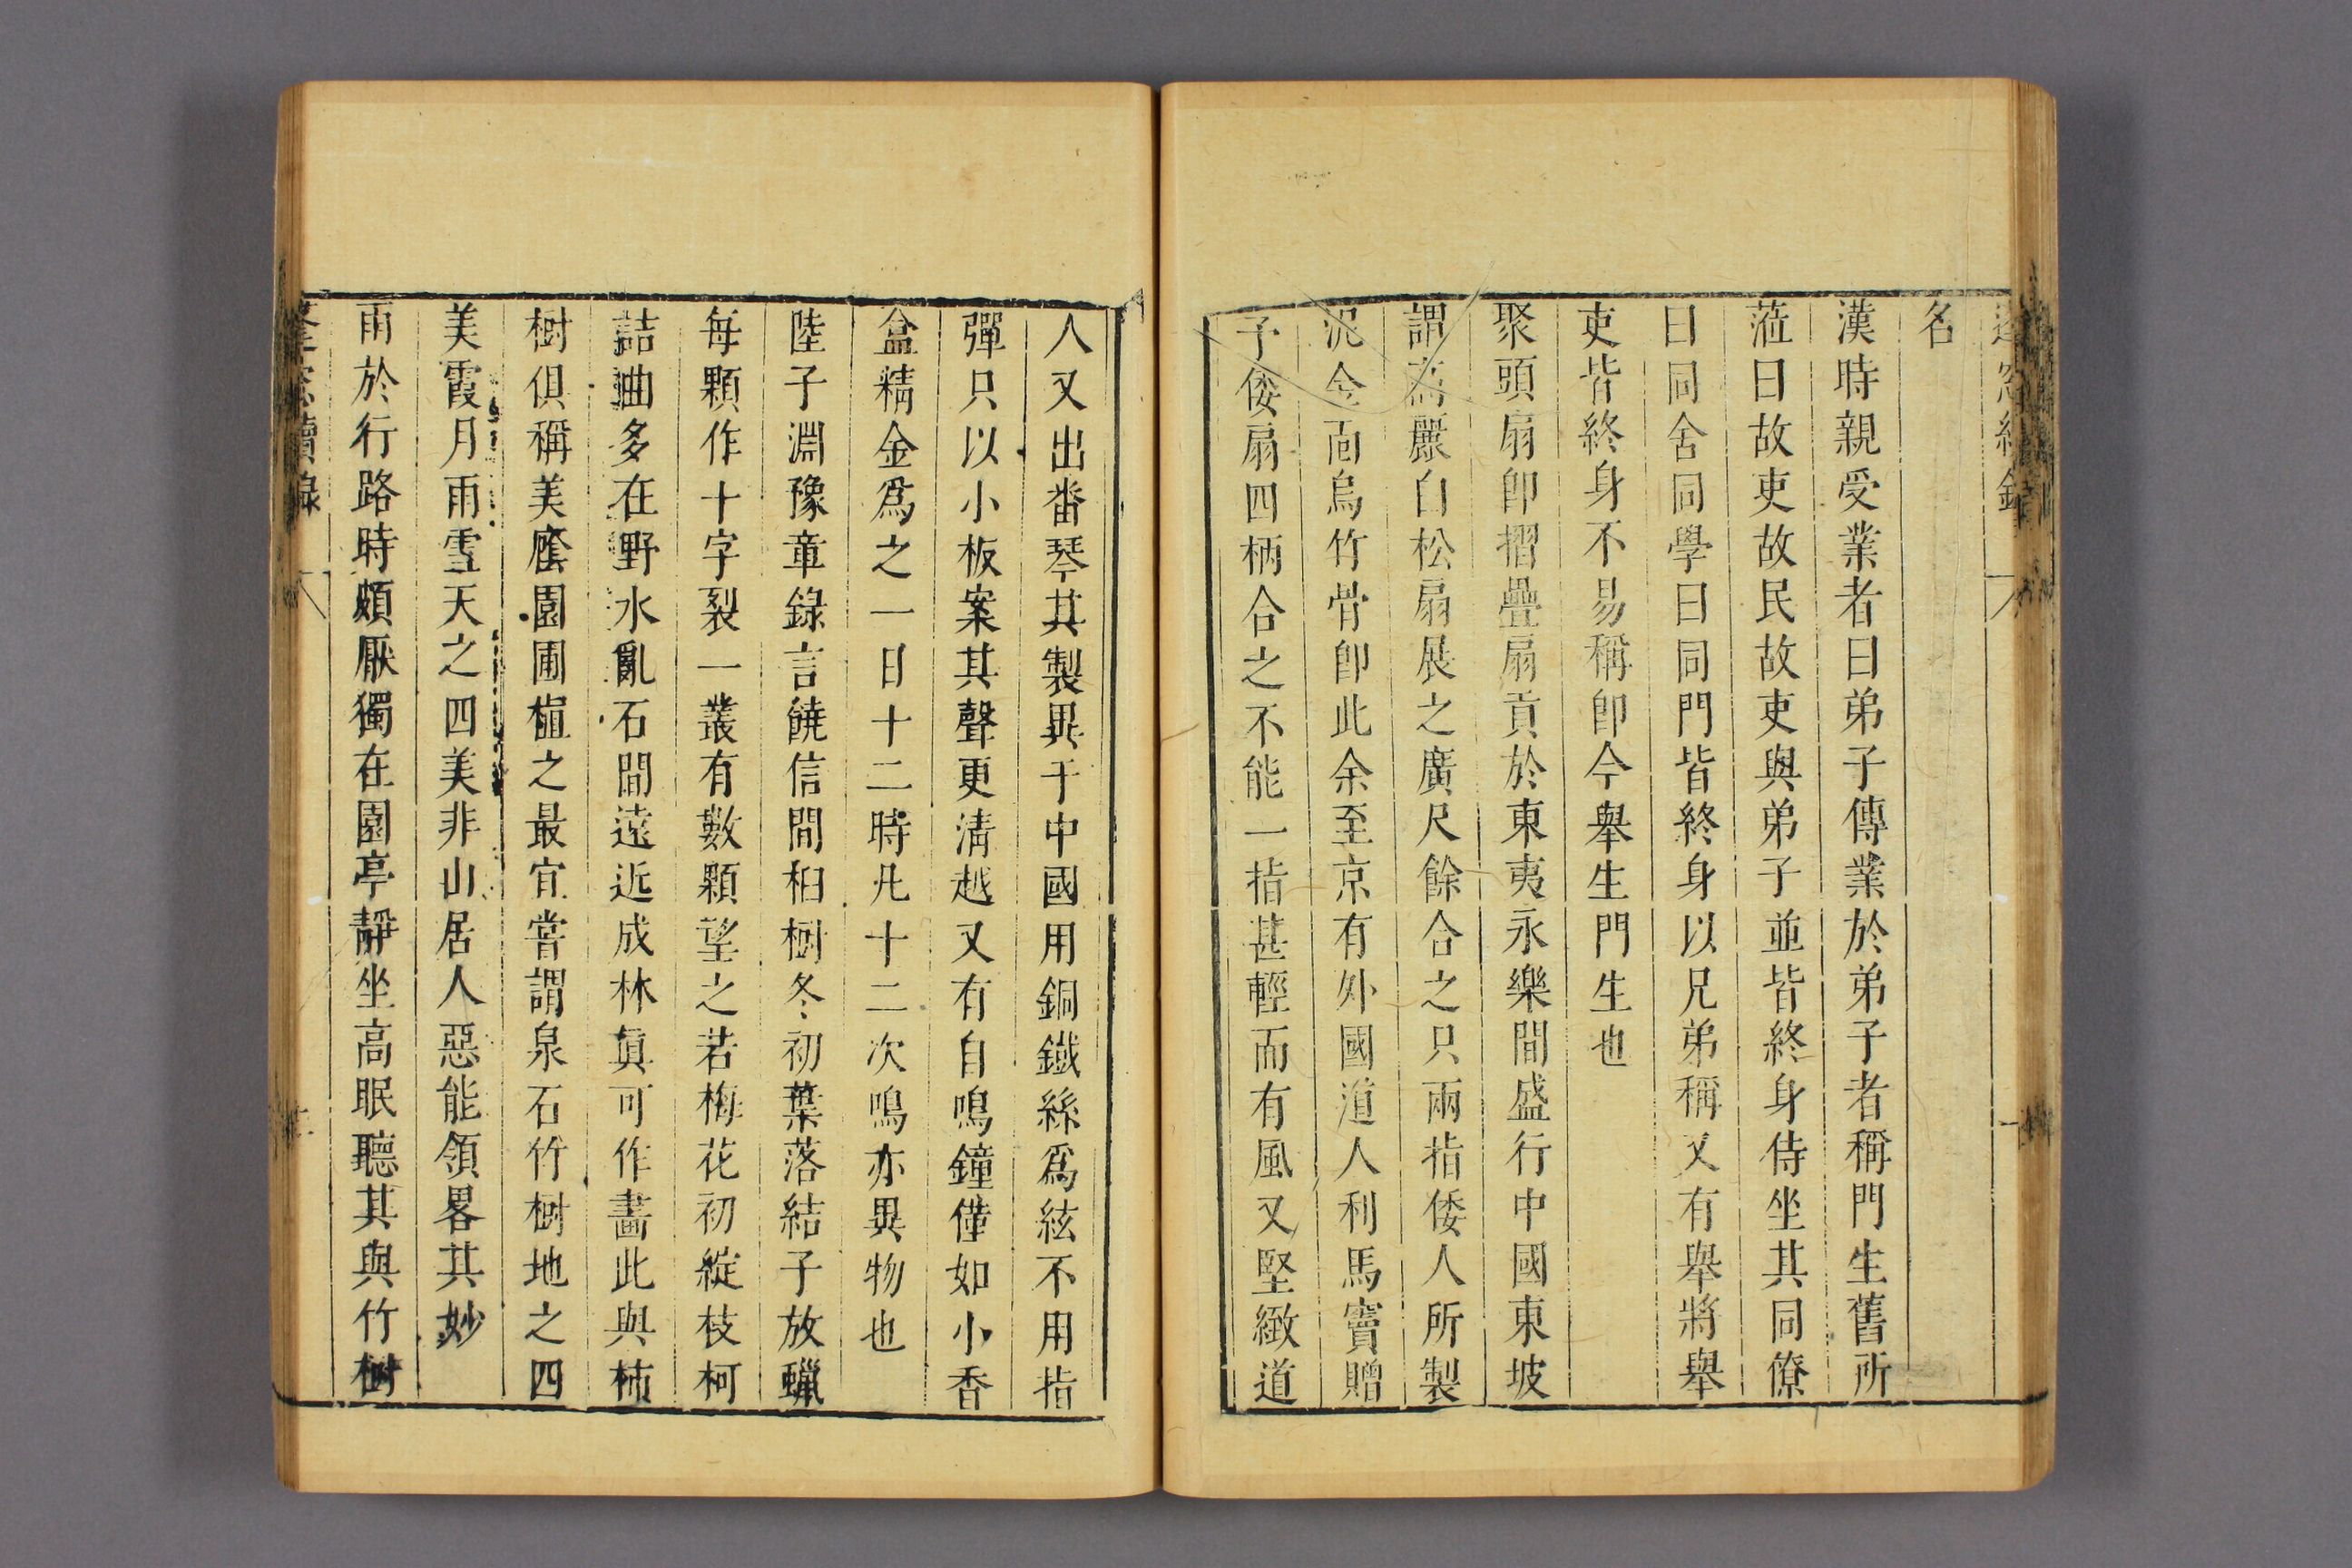 名
漢時親受業者曰弟子傳業於弟子者稱門生舊所
蒞曰故吏故民故吏與弟子並皆終身侍坐其同僚
曰同舍同學曰同門皆終身以兄弟稱又有舉將舉
吏皆終身不易稱卽今舉生門生也
聚頭扇卽摺疊扇貢於東夷永樂間盛行中國東坡
謂高麗白松扇展之廣尺餘合之只兩指倭人所製
泥金面烏竹骨卽此余至京有外國道人利馬竇贈
子倭扇四柄合之不能一指甚輕而有風又堅緻道
人又出番琴其製異于中國用銅鐵絲爲絃不用指
彈只以小板案其聲更清越又有自鳴鐘僅如小香
盒精金爲之一日十二時凡十二次鳴亦異物也
陸子淵豫章錄言饒信間桕樹冬初葉落結子放蠟
每顆作十字裂一叢有數顆望之若梅花初綻枝柯
詰曲多在野水亂石間遠近成林眞可作畵此與柿
樹俱稱美廕園圃植之最宜嘗謂泉石竹樹地之四
美霞月雨雪天之四美非山居人惡能領畧其妙
雨於行路時頗厭獨在園亭靜坐高眠聽其與竹樹